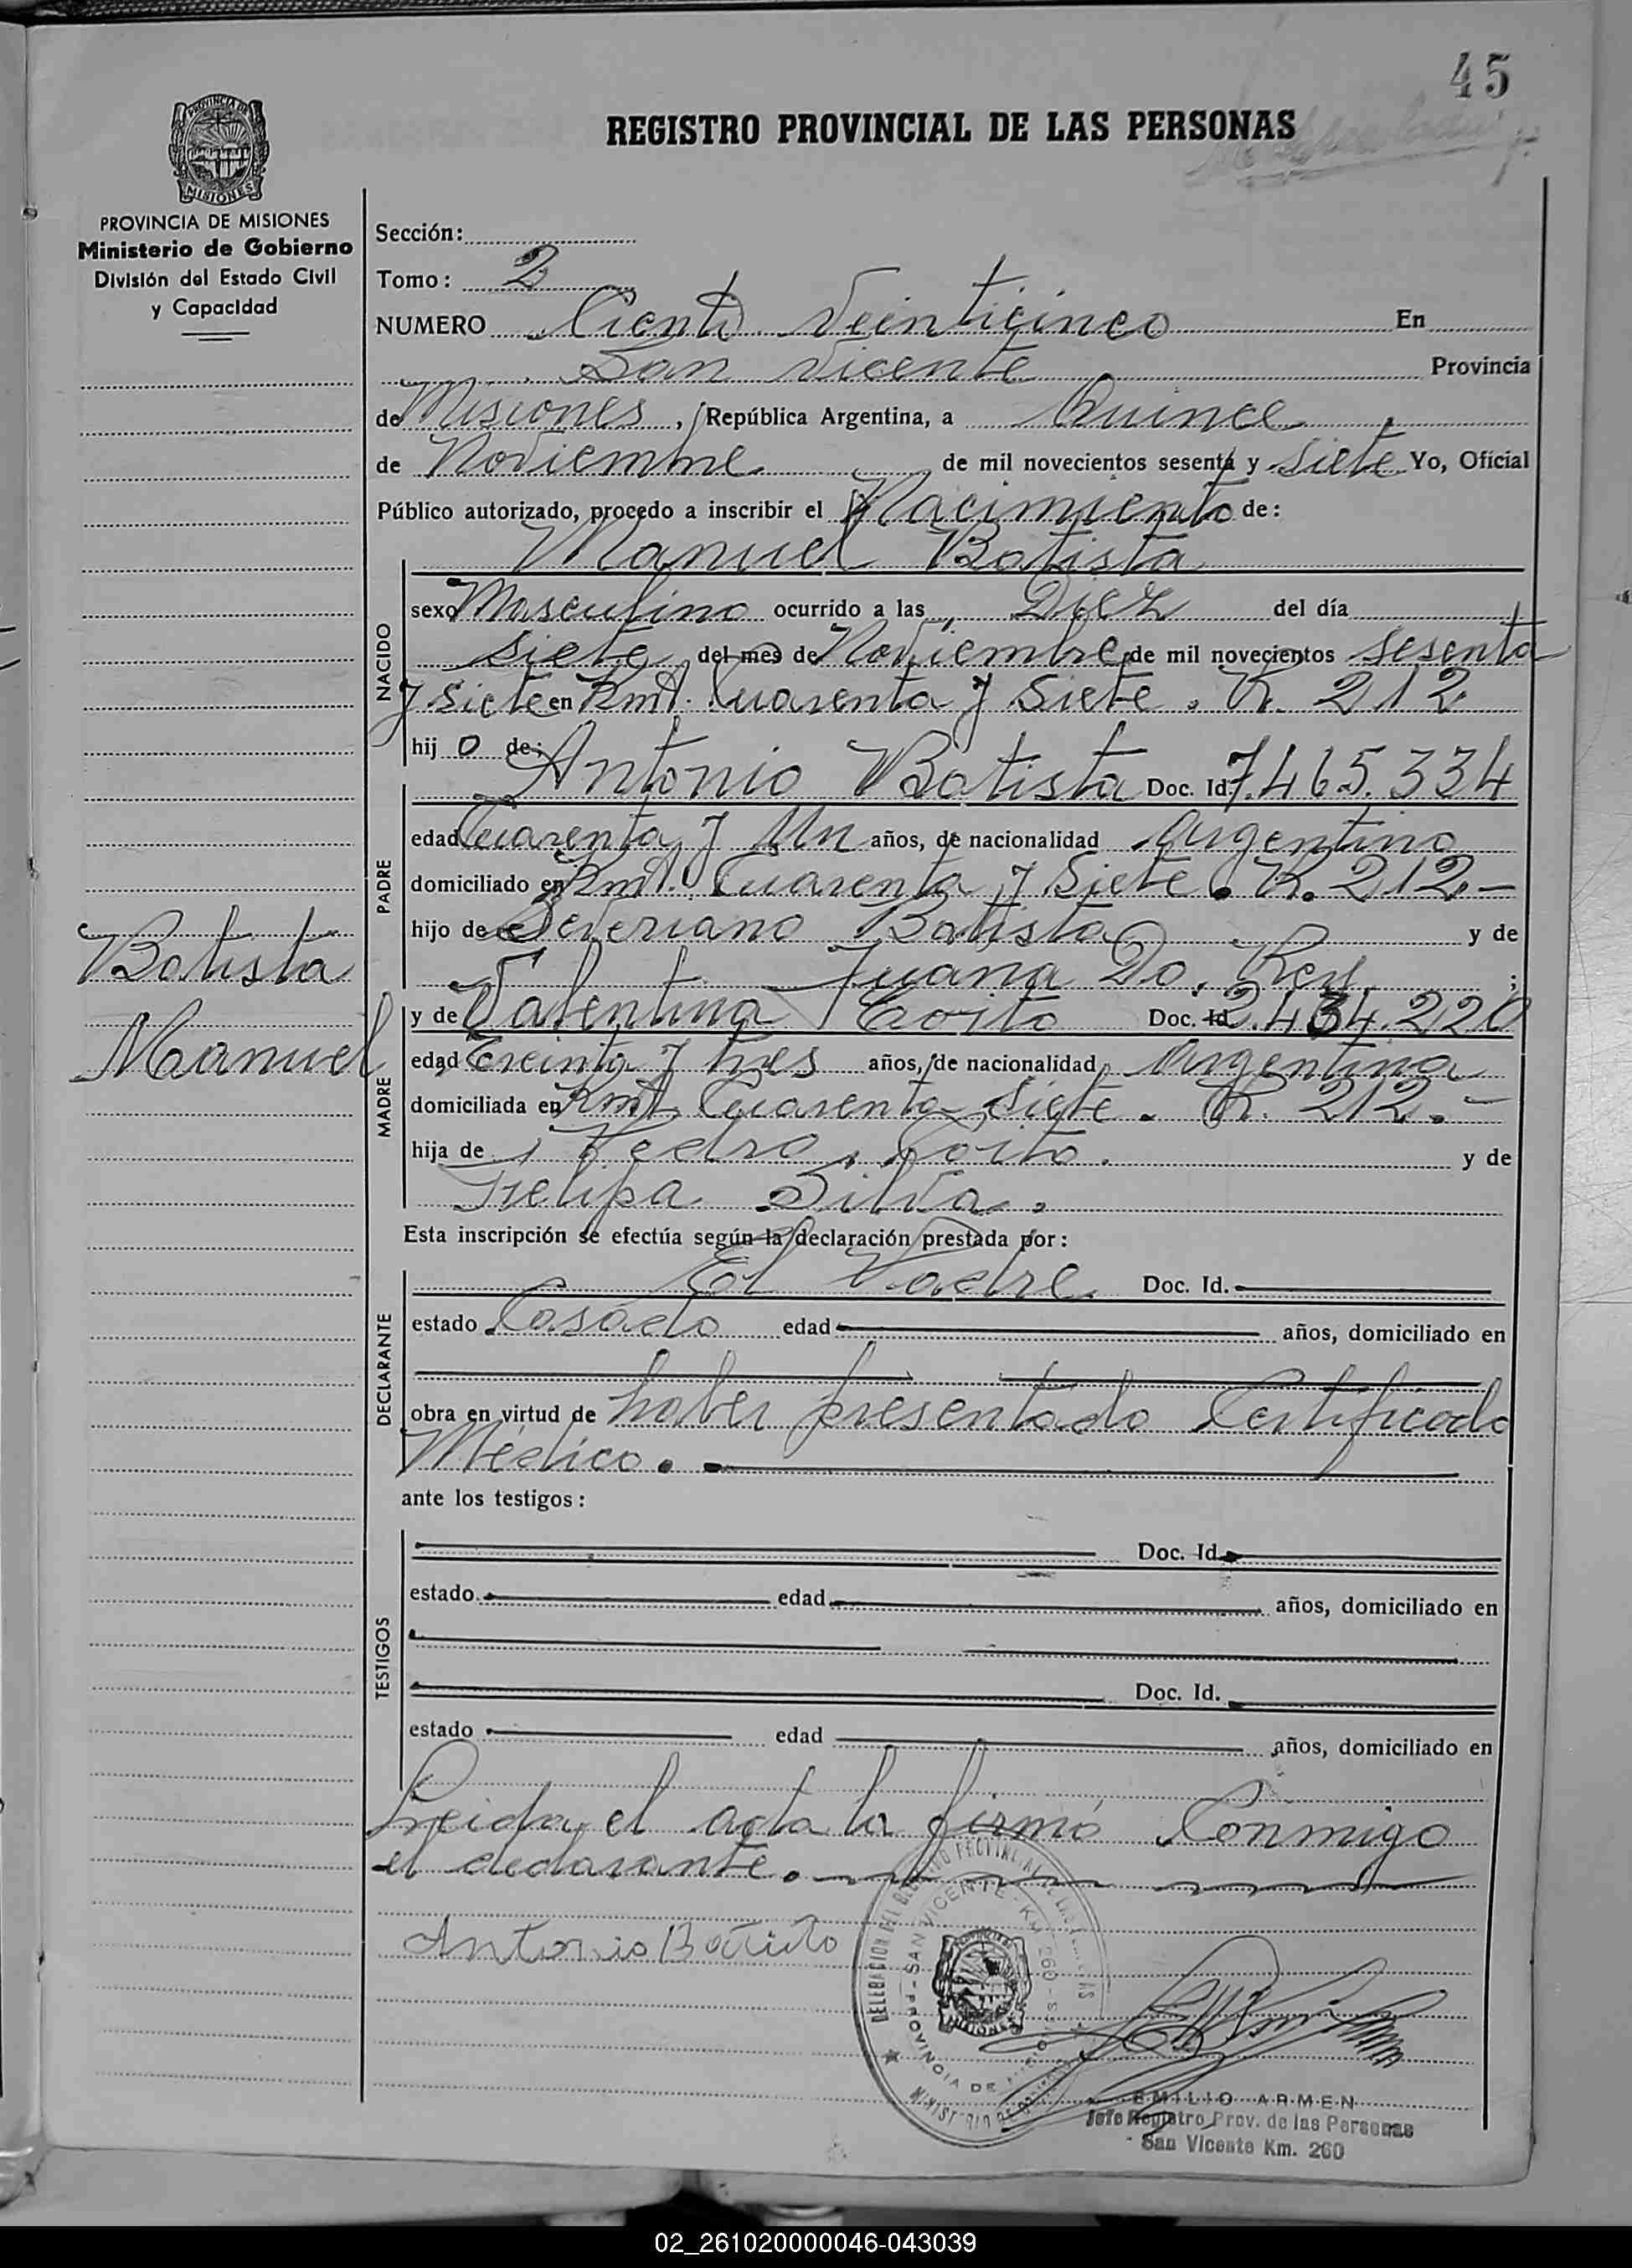 45
REGISTRO PROVINCIAL DE LAS PERSONAS
PROVINCIA DE
MISIONES
PROVINCIA DE MISIONES
Ministerio de Gobierno
División del Estado Civil
y Capacidad
Sección:
Tomo: 2
NUMERO Ciento Veinticinco En
San Vicente Provincia
de Misiones, República Argentina, a Quince
de Noviembre de mil novecientos sesenta y Siete Yo, Oficial
Público autorizado, procedo a inscribir el Nacimiento de:
Manuel Batista
NACIDO
sexo Masculino ocurrido a las Diez del día
siete del mes de Noviembre de mil novecientos sesenta
y siete en Kmt. Cuarenta y Siete. R. 212
hij o de:
Antonio Batista Doc. Id. 7.465.334
PADRE
edad Cuarenta y Un años, de nacionalidad Argentino
domiciliado en Kmt. Cuarenta y Siete. R. 212.-
hijo de Severiano Batista y de
Juana Do. Rey ;
Batista
Manuel
MADRE
y de Valentina Doc. Id. 2.434.220
edad Treinta y tres años, de nacionalidad Argentina
domiciliada en Kmt. Cuarenta Siete. R. 212.-
hija de Pedro y de
Felipa Silva.
Esta inscripción se efectúa según la declaración prestada por:
DECLARANTE
El Padre Doc. Id.
estado Casado edad años, domiciliado en
obra en virtud de haber presentado Certificado
Médico.
ante los testigos:
TESTIGOS
Doc. Id.
estado edad años, domiciliado en
Doc. Id.
estado edad años, domiciliado en
Leida el acta la firmó Conmigo
el declarante.
Antonio
SAN VICENTE - KM 260
PROVINCIA DE
EMILIO ARMEN
Jefe Registro Prov. de las Personas
San Vicente Km. 260
02_261020000046-043039